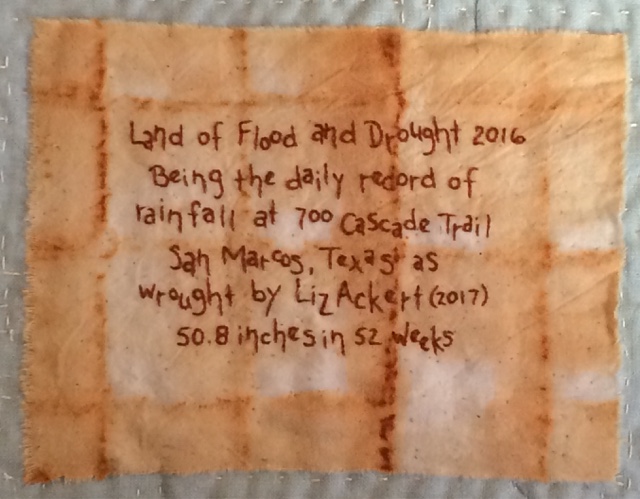 Land of Flood and Drought 2016
Being the daily record of
rainfall at 700 Cascade Trail
San Marcos, Texas as
wrought by Liz Ackert (2017)
50.8 inches in 52 weeks